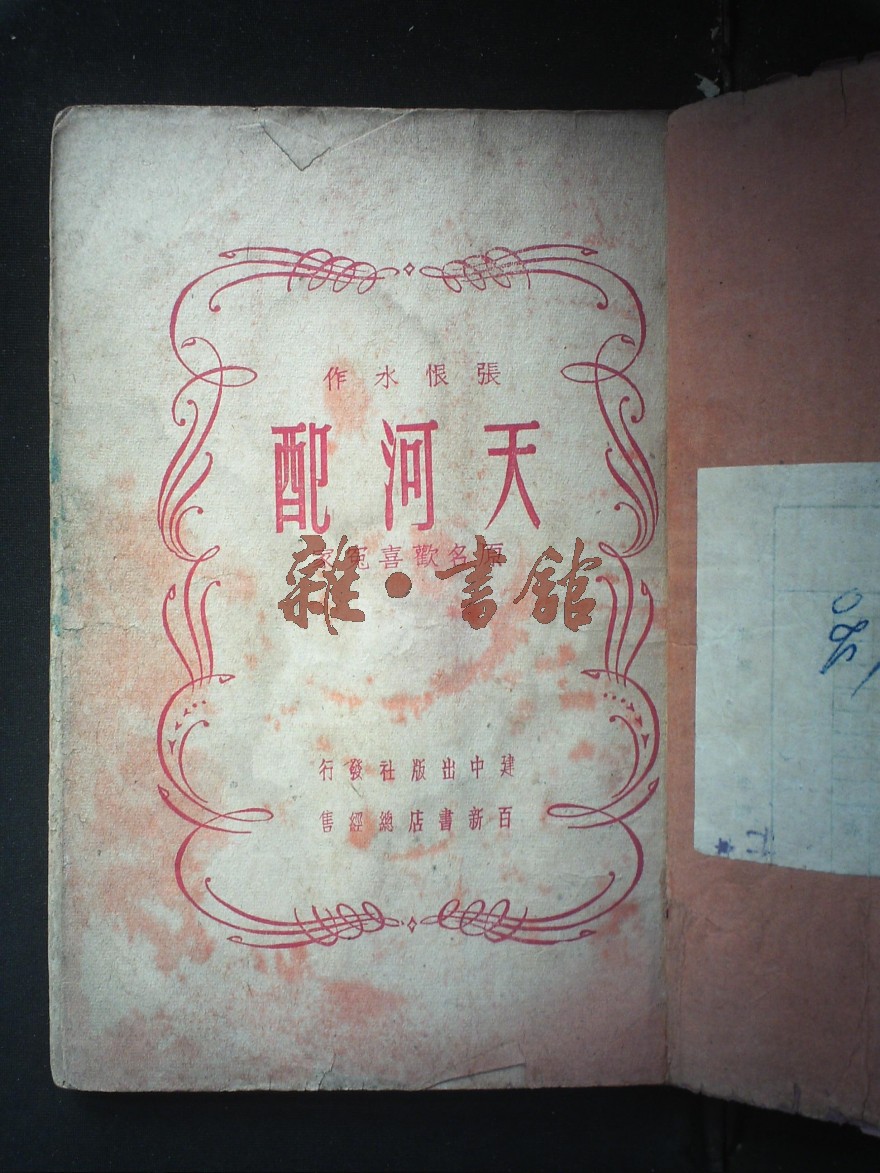 張恨水作
天河配
原名歡喜冤家
雜·書館
建中出版社發行
百新書店總經售